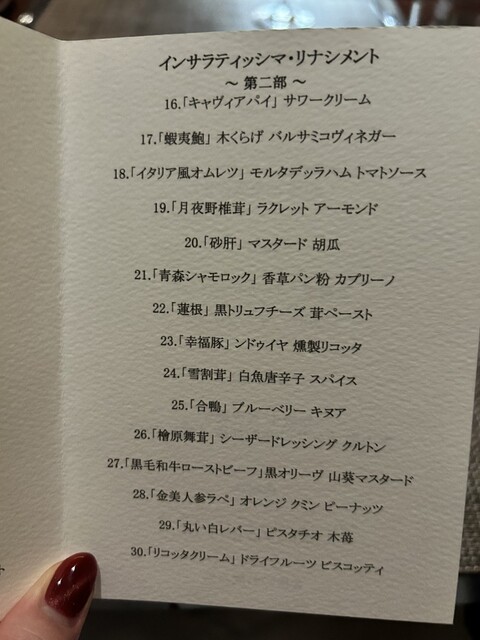 インサラティッシマ・リナシメント
～ 第二部 ～
16.「キャヴィアパイ」 サワークリーム
17.「蝦夷鮑」 木くらげ バルサミコヴィネガー
18.「イタリア風オムレツ」 モルタデッラハム トマトソース
19.「月夜野椎茸」 ラクレット アーモンド
20.「砂肝」 マスタード 胡瓜
21.「青森シャモロック」 香草パン粉 カプリーノ
22.「蓮根」 黒トリュフチーズ 茸ペースト
23.「幸福豚」 ンドゥイヤ 燻製リコッタ
24.「雪割茸」 白魚唐辛子 スパイス
25.「合鴨」 ブルーベリー キヌア
26.「檜原舞茸」 シーザードレッシング クルトン
27.「黒毛和牛ローストビーフ」黒オリーヴ 山葵マスタード
28.「金美人参ラペ」 オレンジ クミン ピーナッツ
29.「丸い白レバー」 ピスタチオ 木苺
30.「リコッタクリーム」 ドライフルーツ ビスコッティ